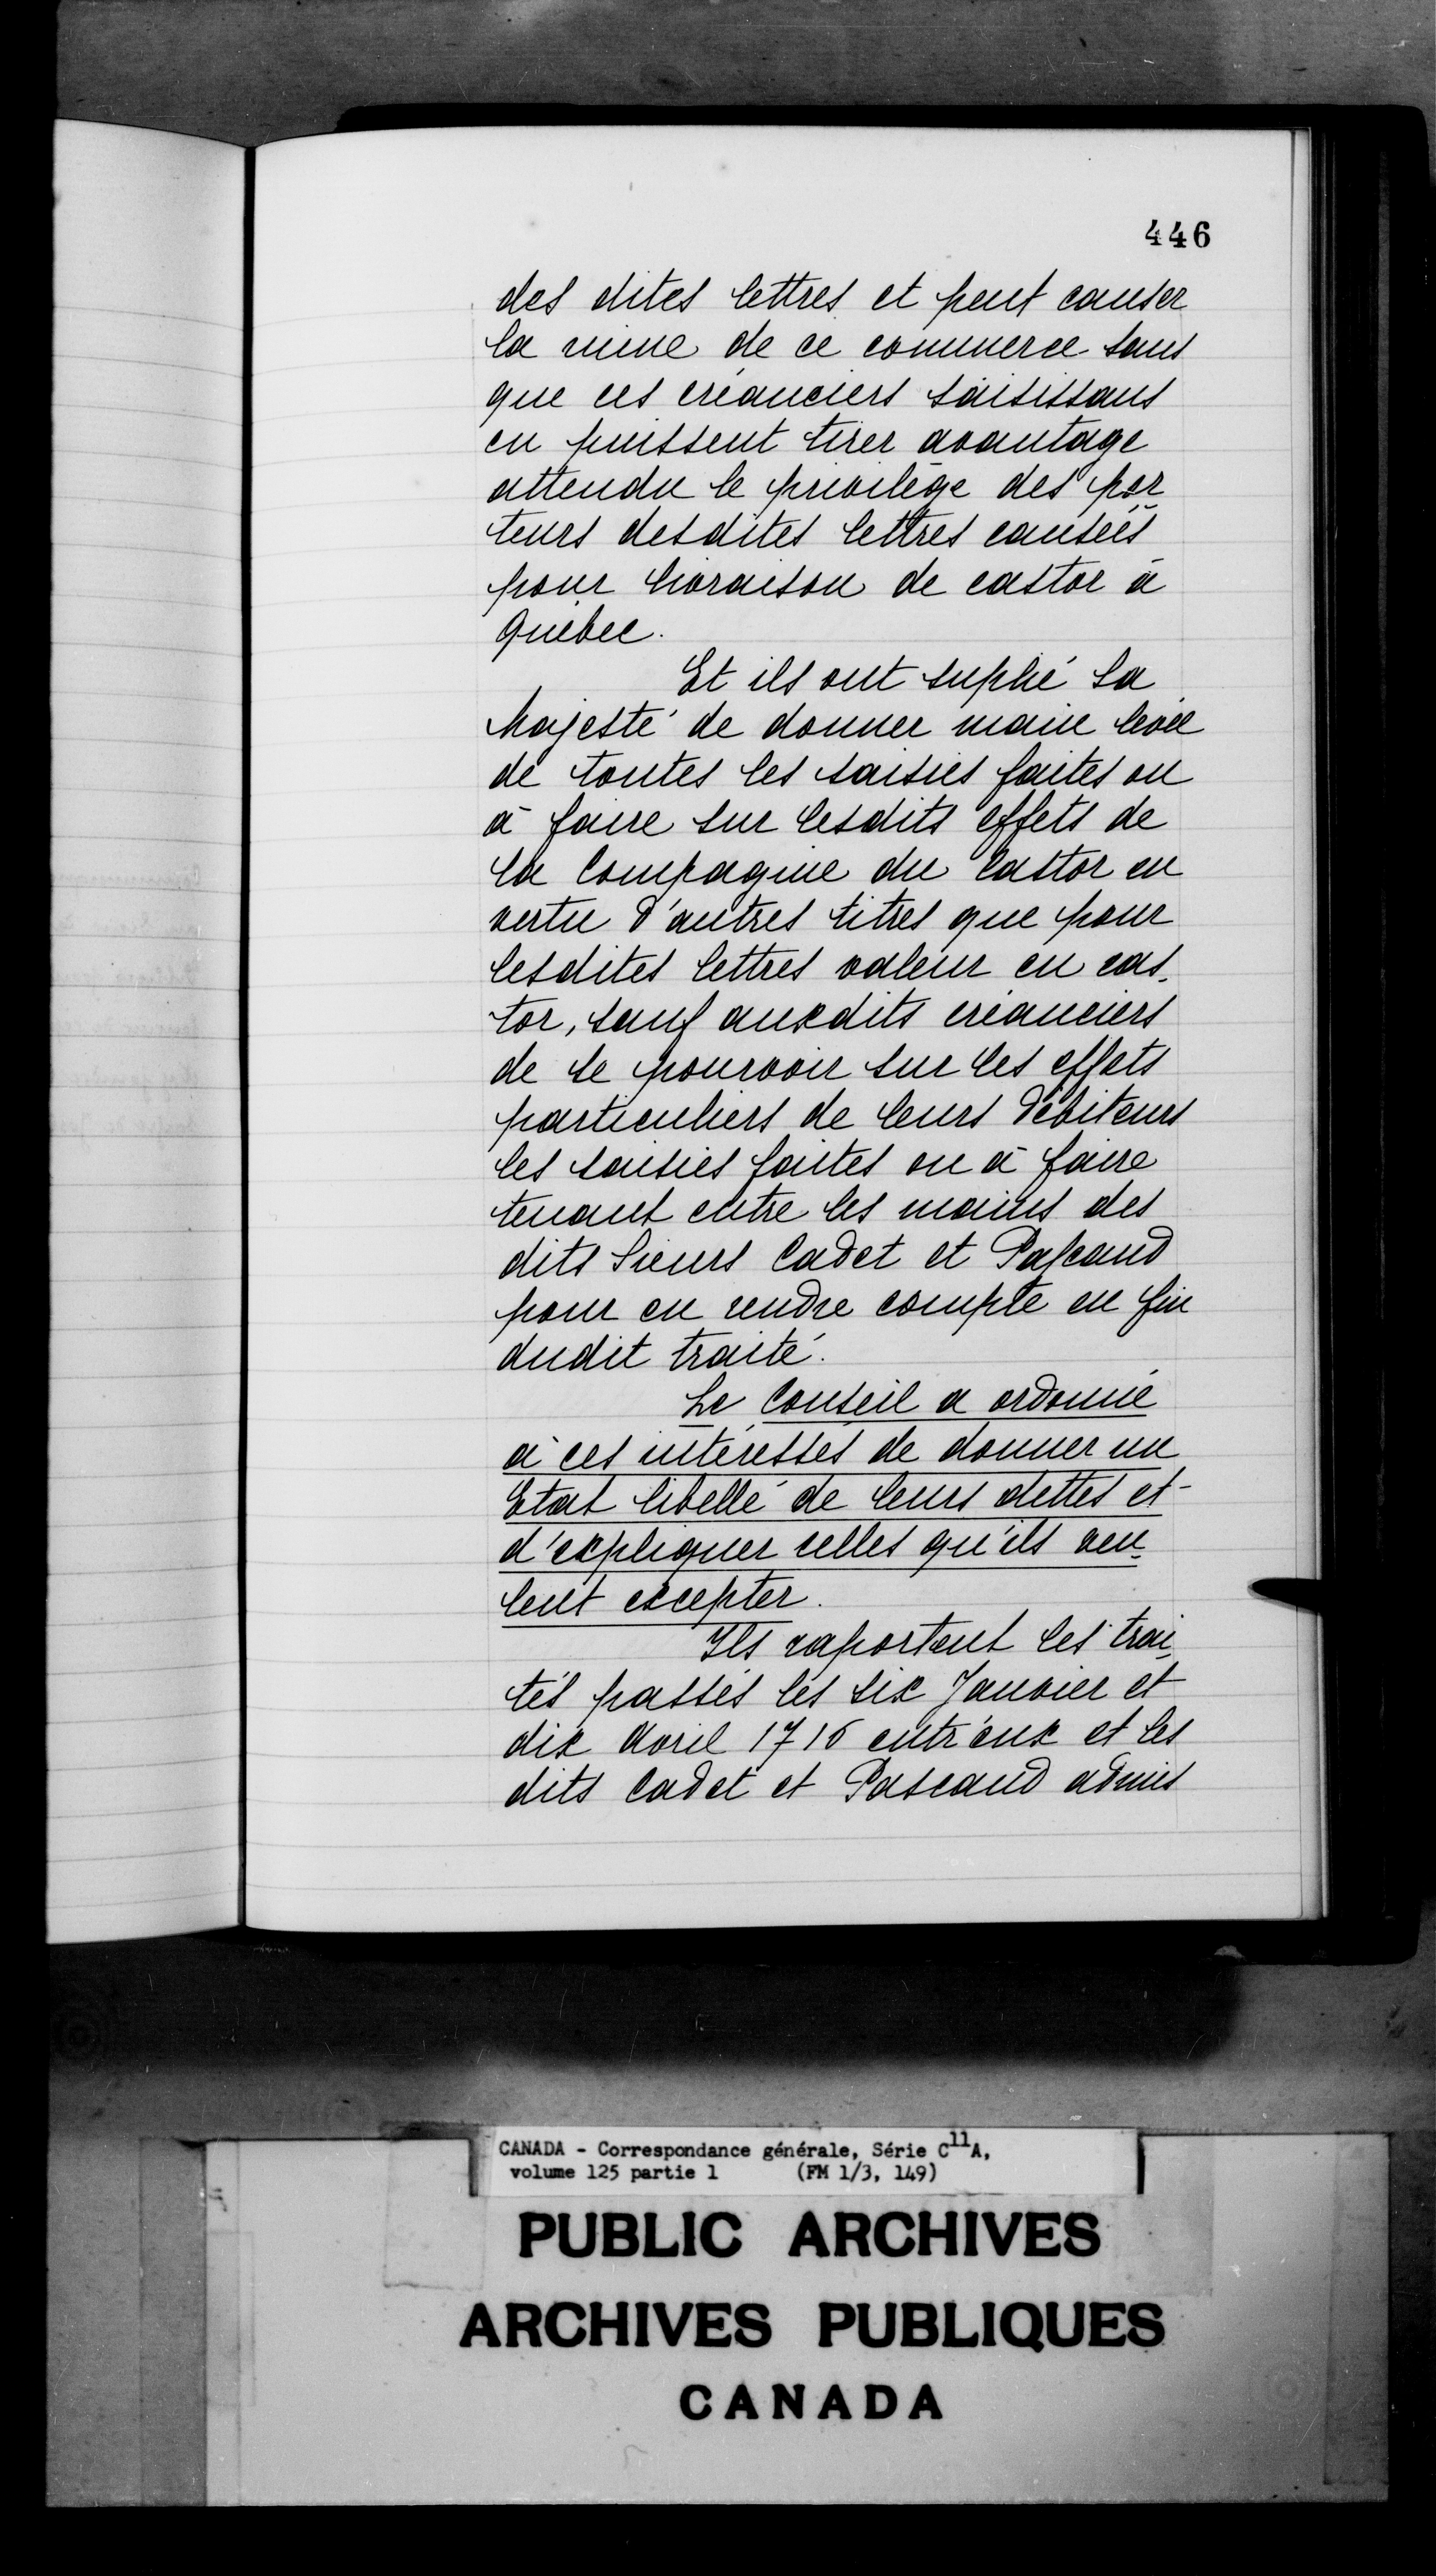 446
des dites lettres et peut causer
la ruine de ce commerce sans
que ces créanciers saisissans
en puissent tirer avantage
attendu le privilège des por
teurs desdites lettres causées
pour livraison de castor à
Québec.
Et ils ont suplié Sa
Majesté de donner main levée
de toutes les saisies faites ou
à faire sur lesdits effets de
la Compagnie du Castor en
vertu d'autres titres que pour
lesdites lettres valeur en cas-
tor, sauf auxdits créanciers
de se pourvoir sur les effets
particuliers de leurs débiteurs
les saisies faites ou à faire
tenant entre les mains des
dits Sieurs Cadet et Pascaud
pour en rendre compte en fin
dudit traité.
Le Conseil a ordonné
à ces intéressés de donner un
Etat libellé de leurs dettes et-
d'expliquer celles qu'ils veu-
lent excepter.
Ils raportent les trai-
tés passés les six Janvier et
dix Avril 1716 entr'eux et les
dits Cadet et Pascaud admis
CANADA - Correspondance générale, Série C11A,
volume 125 partie 1 (FM 1/3, 149)
PUBLIC ARCHIVES
ARCHIVES PUBLIQUES
CANADA